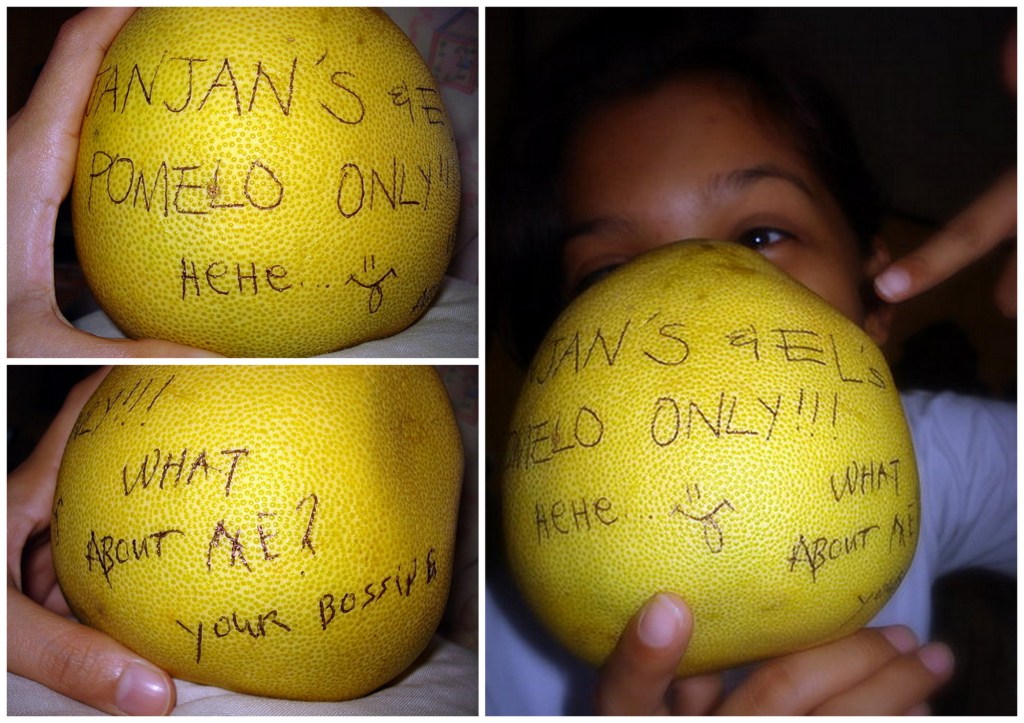 JANJAN'S & E
POMELO ONLY!!
HeHe...
LY!!!
WHAT
ABOUT ME?
YOUR BOSSING
JAN'S & EL's
MELO ONLY!!!
HeHe...
WHAT
ABOUT ME